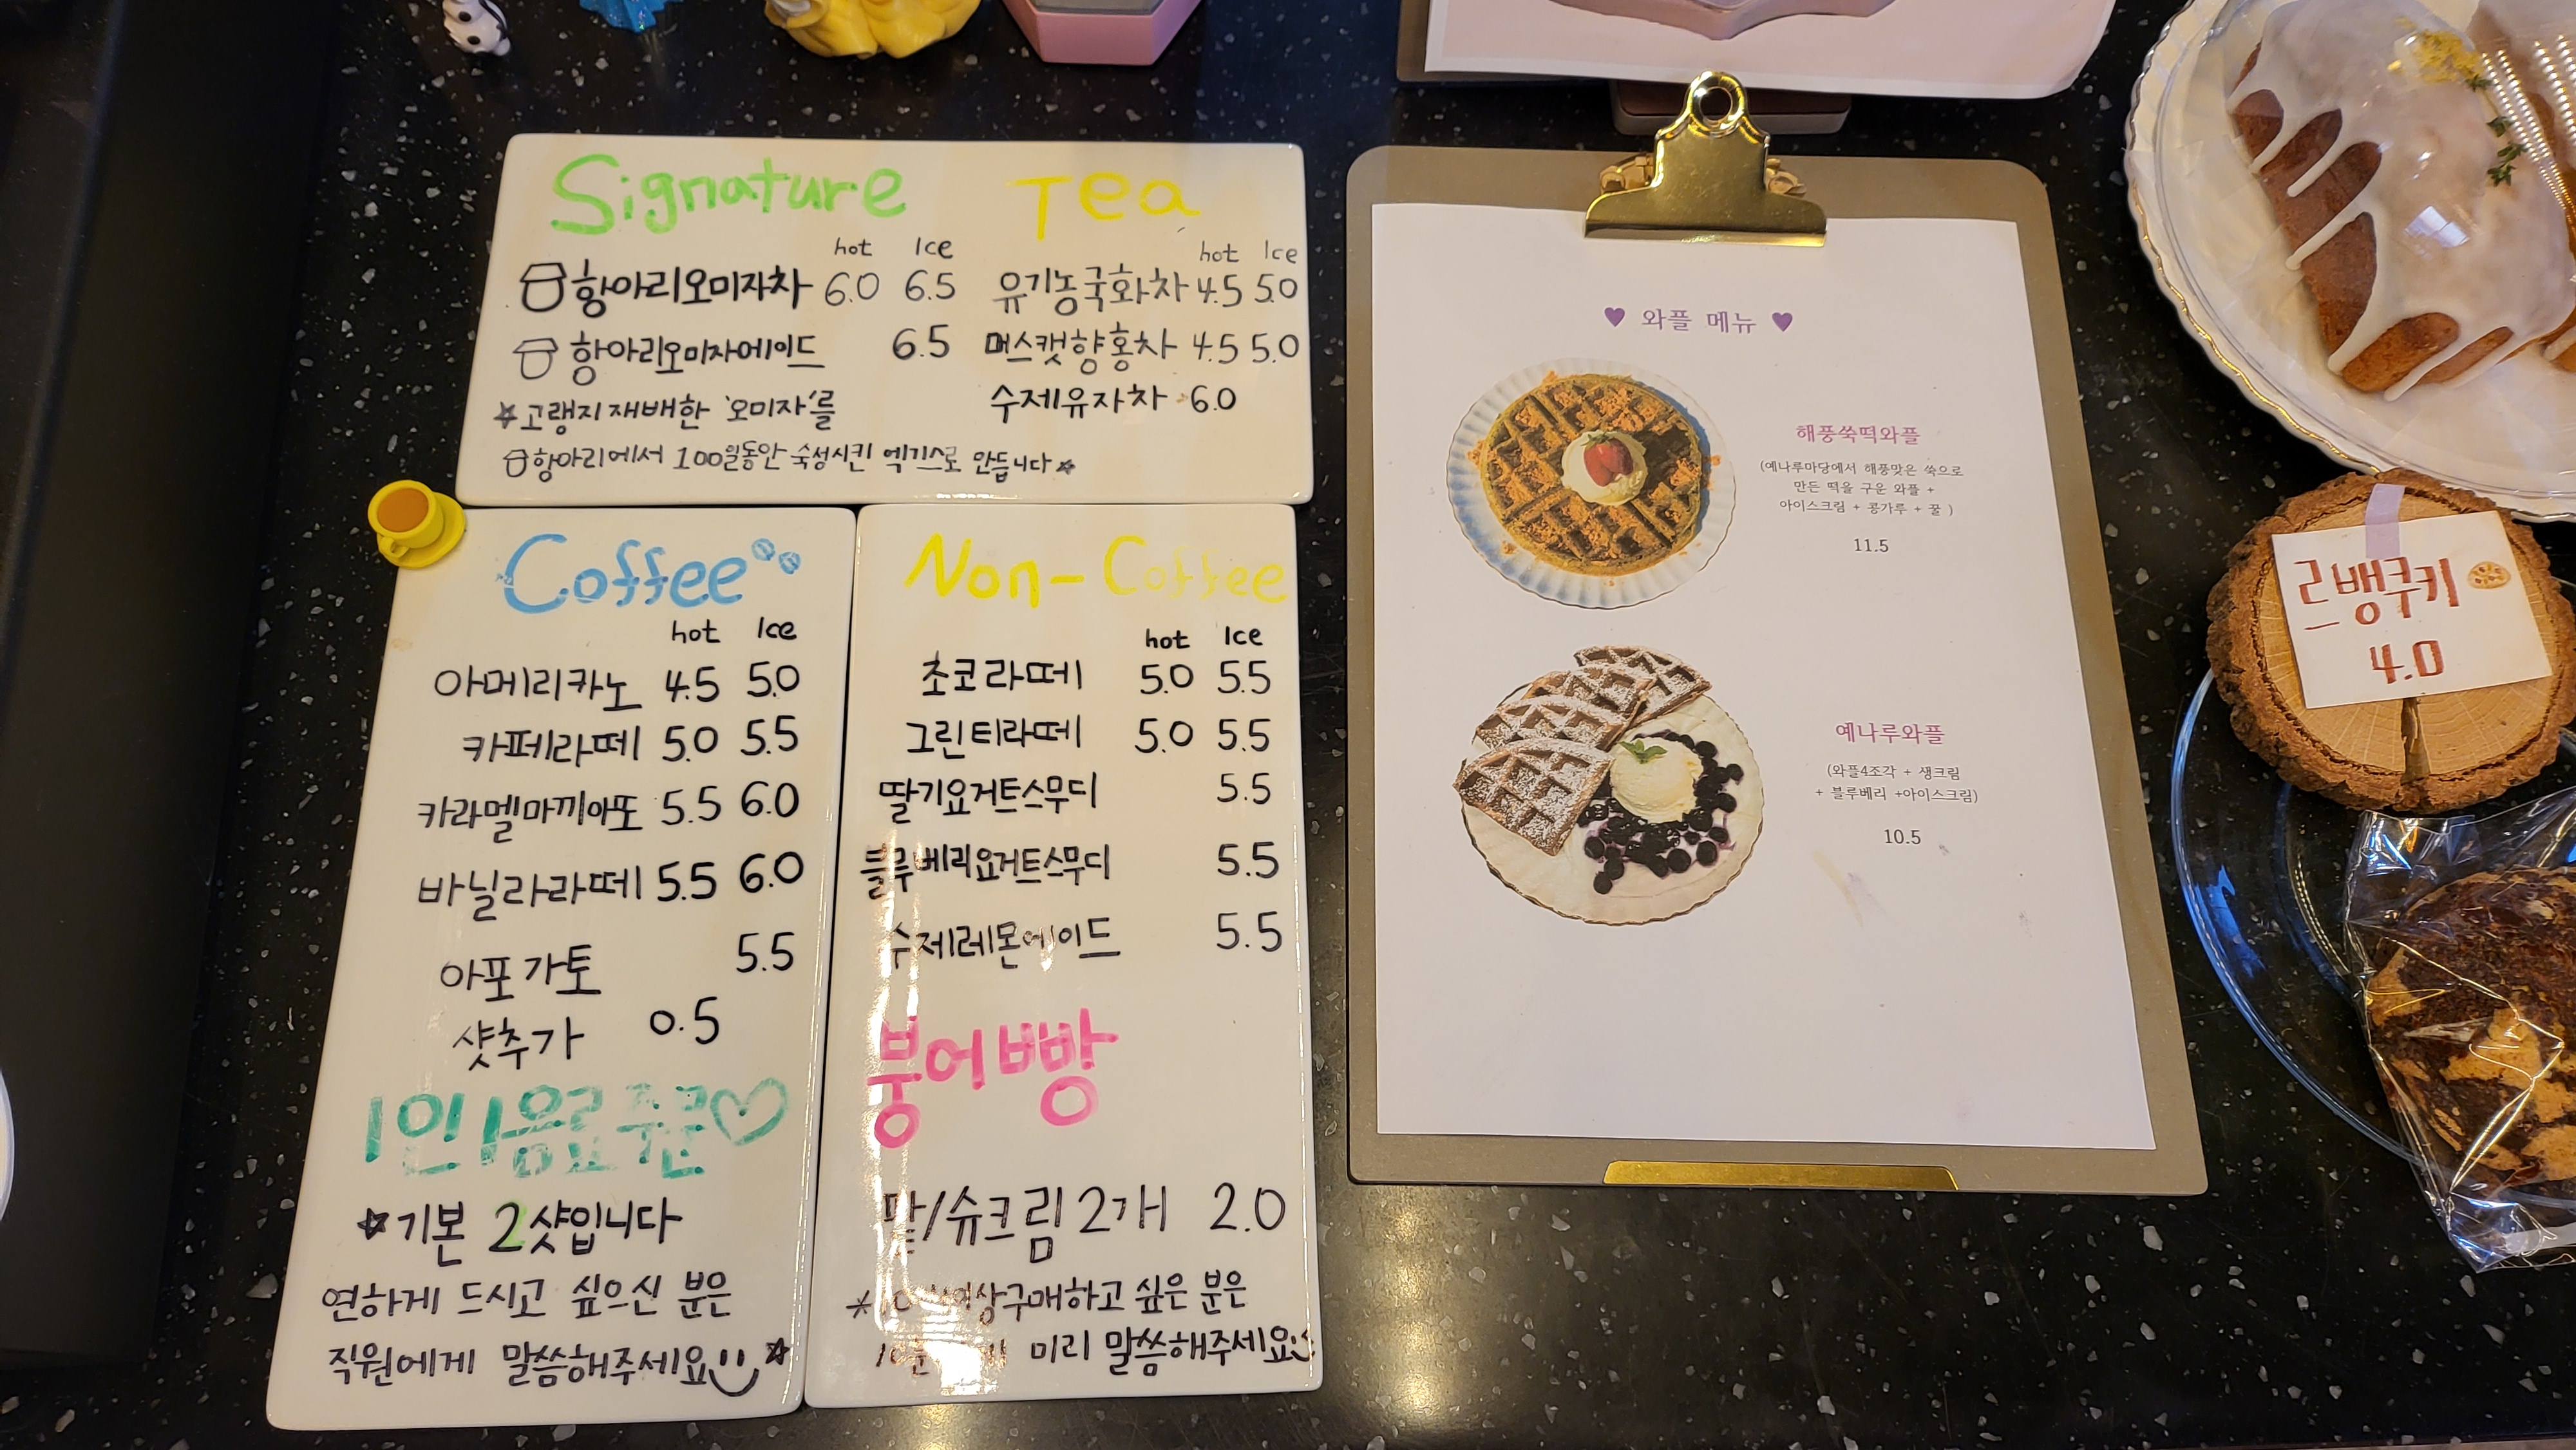 Signature
hot Ice
항아리오미자차 6.0 6.5
항아리오미자에이드 6.5
☆고랭지 재배한 '오미자'를
항아리에서 100일동안 숙성시킨 엑기스로 만듭니다☆
Tea
hot Ice
유기농국화차 4.5 5.0
머스캣향홍차 4.5 5.0
수제유자차 6.0
Coffee
hot Ice
아메리카노 4.5 5.0
카페라떼 5.0 5.5
카라멜마끼아또 5.5 6.0
바닐라라떼 5.5 6.0
아포가토 5.5
샷추가 0.5
1인1음료주문♡
☆기본 2샷입니다
연하게 드시고 싶으신 분은
직원에게 말씀해주세요☆
Non-Coffee
hot Ice
초코라떼 5.0 5.5
그린티라떼 5.0 5.5
딸기요거트스무디 5.5
블루베리요거트스무디 5.5
수제레몬에이드 5.5
붕어빵
팥/슈크림 2개 2.0
구매하고 싶은 분은
미리 말씀해주세요
♥ 와플 메뉴 ♥
해풍쑥떡와플
(예나루마당에서 해풍맞은 쑥으로
만든 떡을 구운 와플 +
아이스크림 + 콩가루 + 꿀 )
11.5
예나루와플
(와플4조각 + 생크림
+ 블루베리 +아이스크림)
10.5
르뱅쿠키
4.0